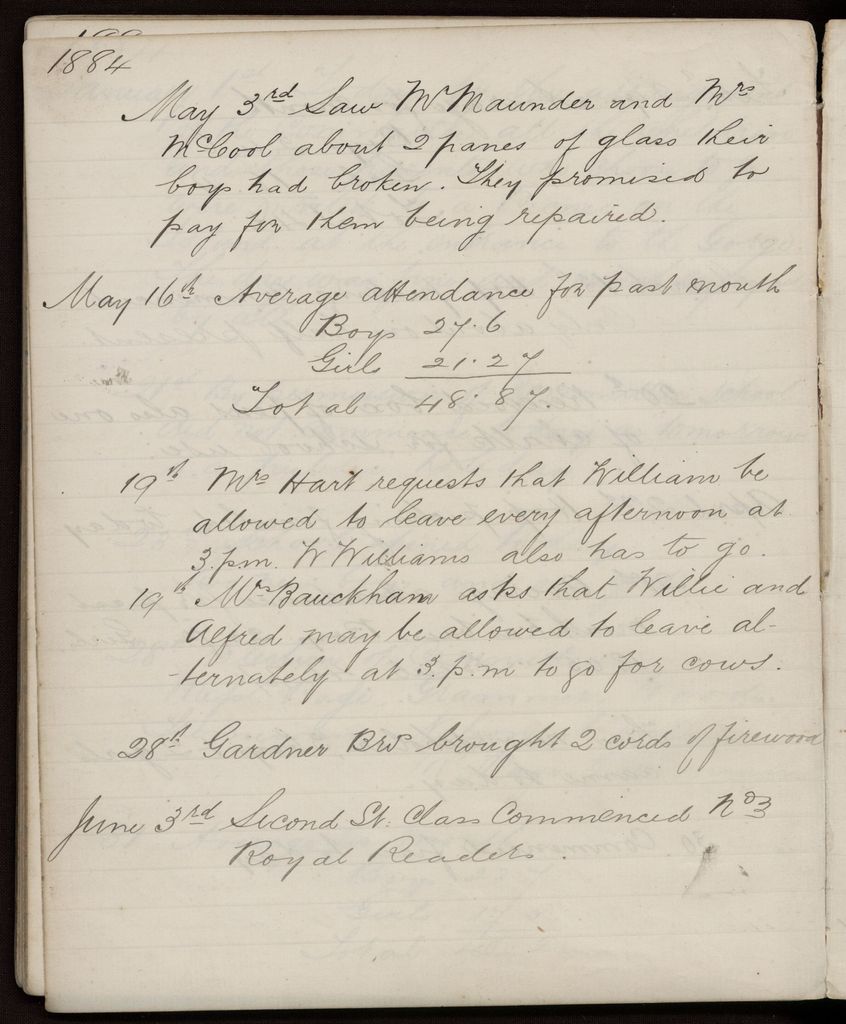 1884
May 3rd Saw Mr Maunder and Mrs
McCool about 2 panes of glass their
boys had broken. They promised to
pay for them being repaired.
May 16th Average attendance for past month
Boys 27.6
Girls 21.27
Total 48.87.
19th Mrs Hart requests that William be
allowed to leave every afternoon at
3.pm. W Williams also has to go.
19th Mrs Bauckham asks that Willie and
Alfred may be allowed to leave al-
ternately at 3.p.m to go for cows.
28th Gardner Bros brought 2 cords of firewood
June 3rd Second St. Class Commenced No 3
Royal Readers.